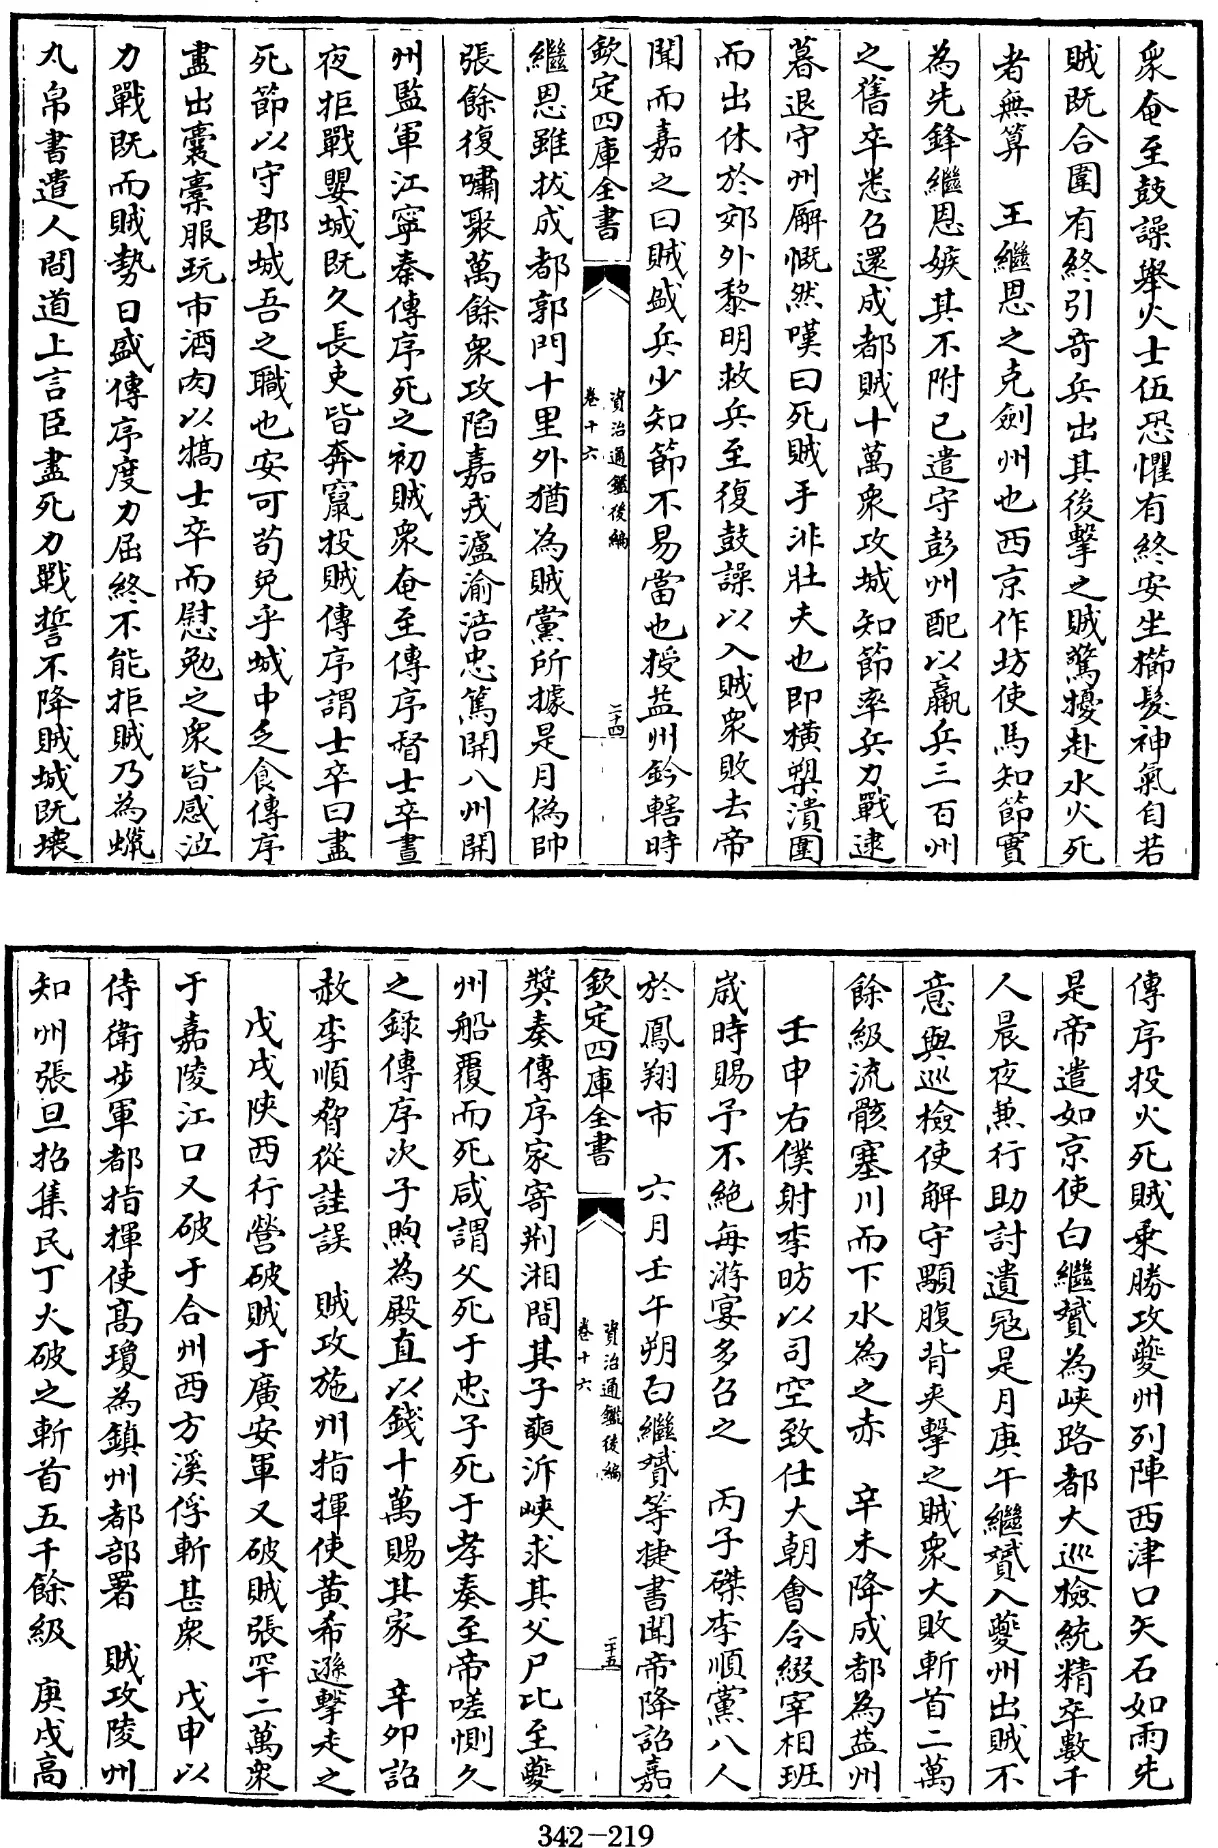 衆奄至鼓譟舉火士伍恐懼有終安坐櫛髮神氣自若
賊既合圍有終引奇兵出其後擊之賊驚擾赴水火死
者無算　王繼恩之克劍州也西京作坊使馬知節實
為先鋒繼恩嫉其不附已遣守彭州配以羸兵三百州
之舊卒悉召還成都賊十萬衆攻城知節率兵力戰逮
暮退守州廨慨然嘆曰死賊手非壯夫也即橫槊潰圍
而出休於郊外黎明救兵至復鼓譟以入賊衆敗去帝
聞而嘉之曰賊盛兵少知節不易當也授益州鈐轄時
欽定四庫全書
資治通鑑後編
卷十六
二十四
繼恩雖拔成都郭門十里外猶為賊黨所據是月偽帥
張餘復嘯聚萬餘衆攻陷嘉戎瀘渝涪忠萬開八州開
州監軍江寧秦傳序死之初賊衆奄至傳序督士卒晝
夜拒戰嬰城既久長吏皆奔竄投賊傳序謂士卒曰盡
死節以守郡城吾之職也安可苟免乎城中乏食傳序
盡出囊橐服玩市酒肉以犒士卒而慰勉之衆皆感泣
力戰既而賊勢日盛傳序度力屈終不能拒賊乃為蠟
丸帛書遣人間道上言臣盡死力戰誓不降賊城既壞
傳序投火死賊乘勝攻夔州列陣西津口矢石如雨先
是帝遣如京使白繼贇為峽路都大巡檢統精卒數千
人晨夜兼行助討遺寇是月庚午繼贇入夔州出賊不
意與巡檢使解守顒腹背夾擊之賊衆大敗斬首二萬
餘級流骸塞川而下水為之赤　辛未降成都為益州
壬申右僕射李昉以司空致仕大朝會令綴宰相班
歲時賜予不絕每游宴多召之　丙子磔李順黨八人
於鳳翔市　六月壬午朔白繼贇等捷書聞帝降詔嘉
欽定四庫全書
資治通鑑後編
卷十六
二十五
獎奏傳序家寄荆湘間其子奭泝峽求其父尸比至夔
州船覆而死咸謂父死于忠子死于孝奏至帝嗟惻久
之錄傳序次子煦為殿直以錢十萬賜其家　辛卯詔
赦李順脅從詿誤　賊攻施州指揮使黃希遜擊走之
戊戌陜西行營破賊于廣安軍又破賊張罕二萬衆
于嘉陵江口又破于合州西方溪俘斬甚衆　戊申以
侍衛步軍都指揮使髙瓊為鎮州都部署　賊攻陵州
知州張旦招集民丁大破之斬首五千餘級　庚戌高
342-219